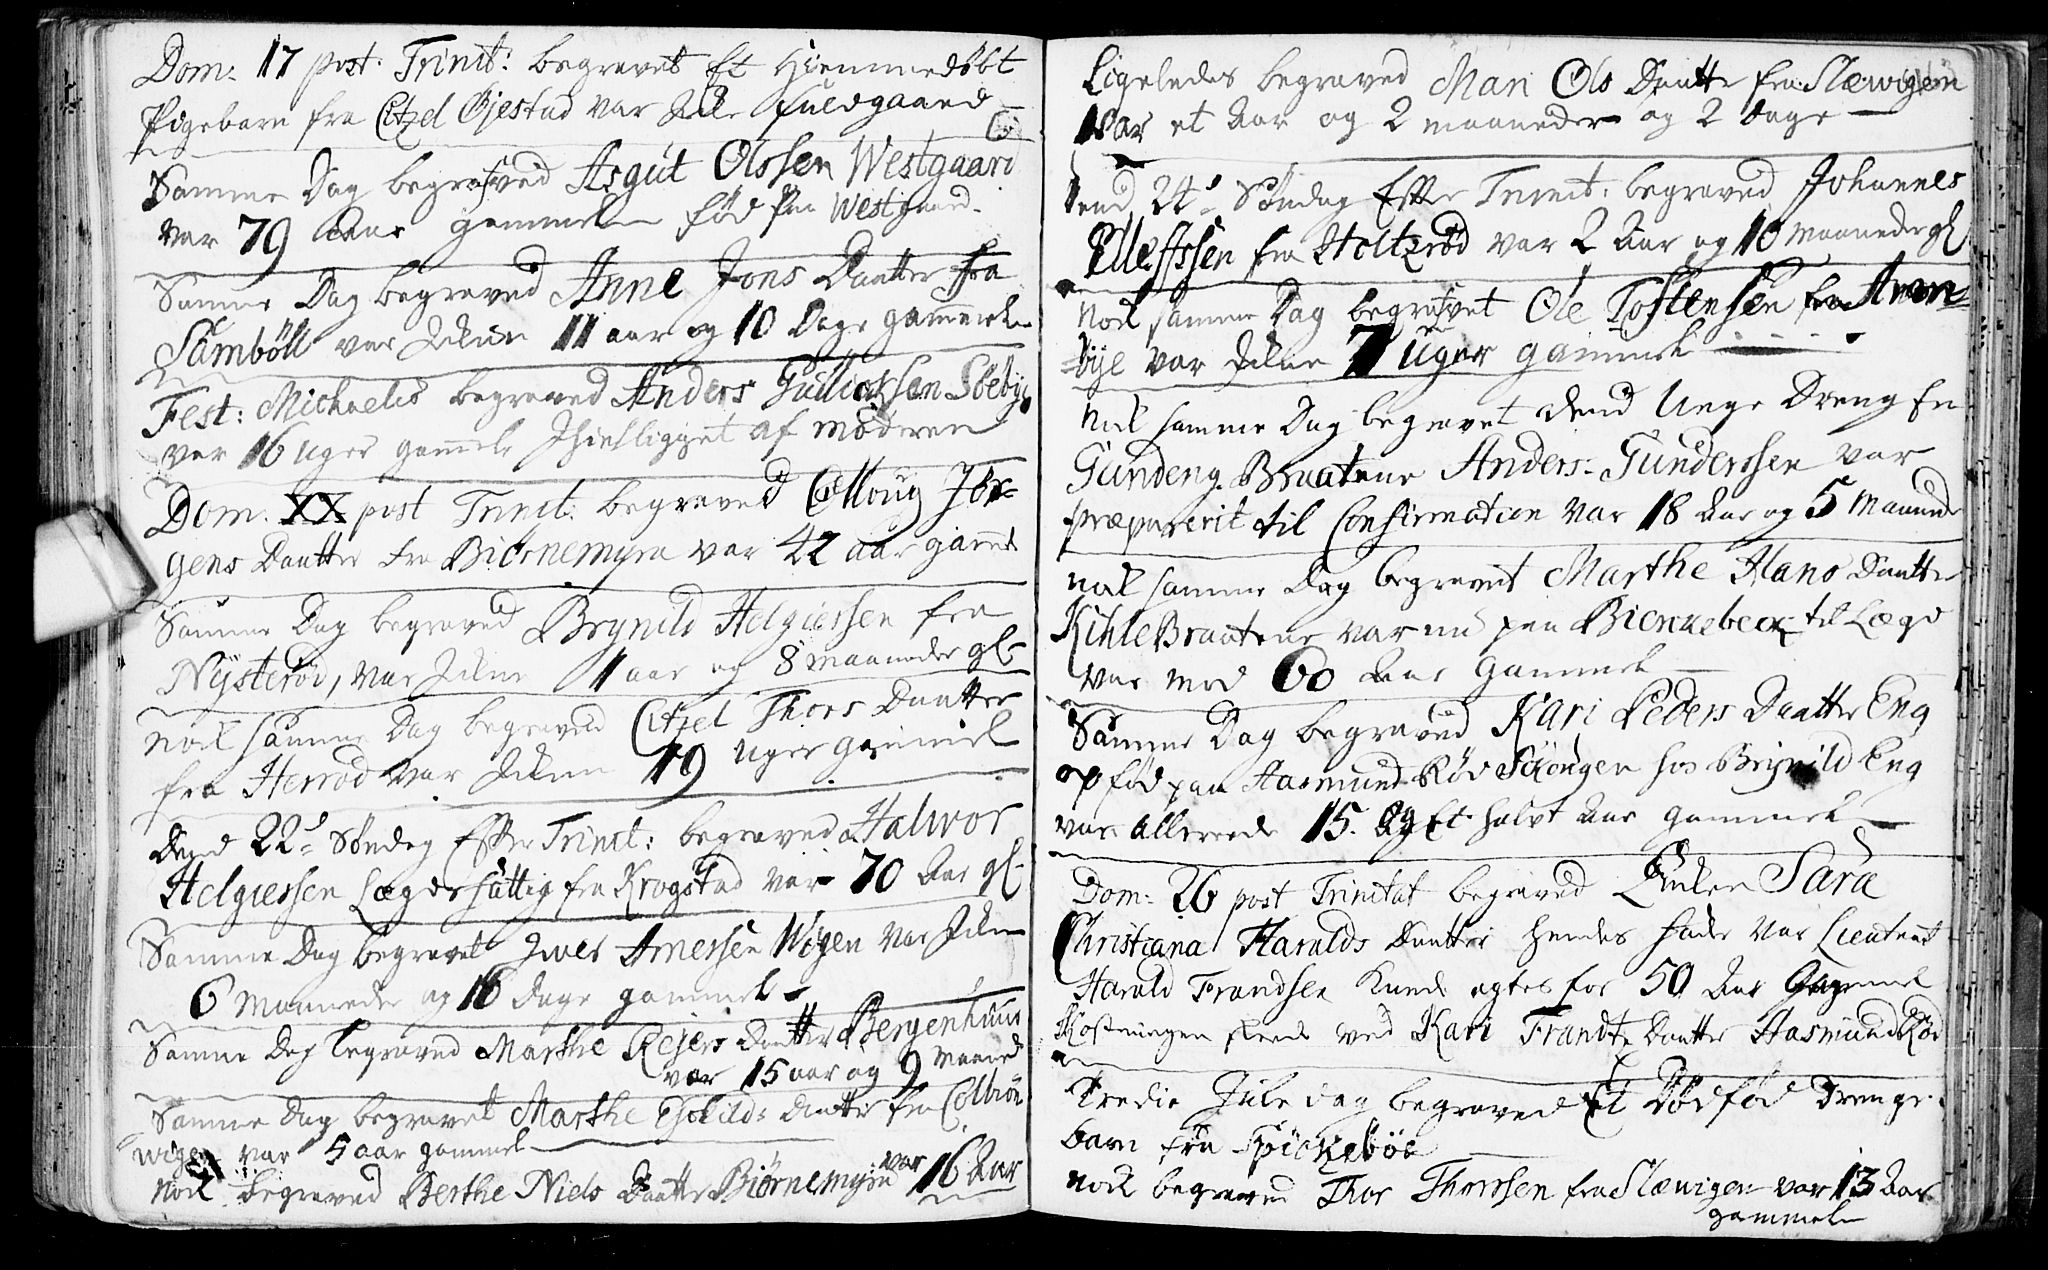 Dom: 17 post. Trinit: begravet Et Hiemmedøbt
Pigebarn fra Citzel Gjestad var icke fuldgaaend
Samme Dag begraved Asgut Olssen Westgaard
var 79 Aar gammel fød paa Westgaard.
Samme Dag begraved Anne Jons Daatter fra
Sambøll var ickun 11 aar og 10 Dage gammel
Fest: Michaelis begraved Anders Gullichssen Søebye
var 16 uger gamel ihielligget af moderen
Dom. XX post Trinit: begraved Olloug Jør=
gens Daatter fra Biørnemyra var 42 aar gamel
Samme Dag begraved Brynild Helgiessen fra
Nysterød, var ickun 1 aar og 8 maaneder gl.
nok samme Dag begraved Citzel Thors Daatter
fra Herrød var ickun 19 uger gammel
Dend 22de Søndag Efter Trinit: begraved Halwor
Helgiessen Lægdsfattig fra Krogstad var 70 Aar gl.
Samme Dag begravet Iver Arnessen Wigen var ickun
6 Maaneder og 16 dage gammel
Samme Dag begraved Marthe Rejers Daatter Bergenhuus
var 15 aar og 9 maaned
Samme Dag begravet Marthe Eschilds Daatter fra Colbiøn
wigen var 5 aar gammel
nok begraved Berthe Niels Daatter Biørnemyra var 16 Aar
Ligeledes begraved Mari Ols Daatter fra Slæwigen
var et Aar og 2 maaneder og 2 dage
dend 24de Søndag Efter Trinit: begraved Johannes
Elleffssen fra Holtzrød var 2 Aar og 10 Maaneder gl
nok samme Dag begravet Ole Tostensen fra Aren=
=bye var ickun 7 Uger gammel
nok samme Dag begravet dend Unge Dreng fra
Gundeng Braatene Anders Gunderssen var
præparerit til Confirmation var 18 Aar og 5 Maaneder
nok samme Dag begravet Marthe Hans Daatter
KihleBraatene var nu paa Biennebeck til Lægd
var mod 60 Aar gammel
Samme Dag begraved Kari Peders Daatter Eng
opfød paa Aasmund Rød Skougen hos Brynild Eng
var allerede 15. Og Et halvt Aar gammel
Dom: 26 post Trinitat begraved Enken Sara
Christiana Haralds Daatter hendes fader var Lieutnt
Harald Frandsen kunde agtes for 50 Aar Gammel
Kostningen skeede ved Kari Frandtz Daatter AasmundRød
Tredie Juledag begraved Et Dødfød Drenge
barn fra Spickebøe
nok begraved Thor Thorssen fra Slæwigen var 13 Aar
gammel